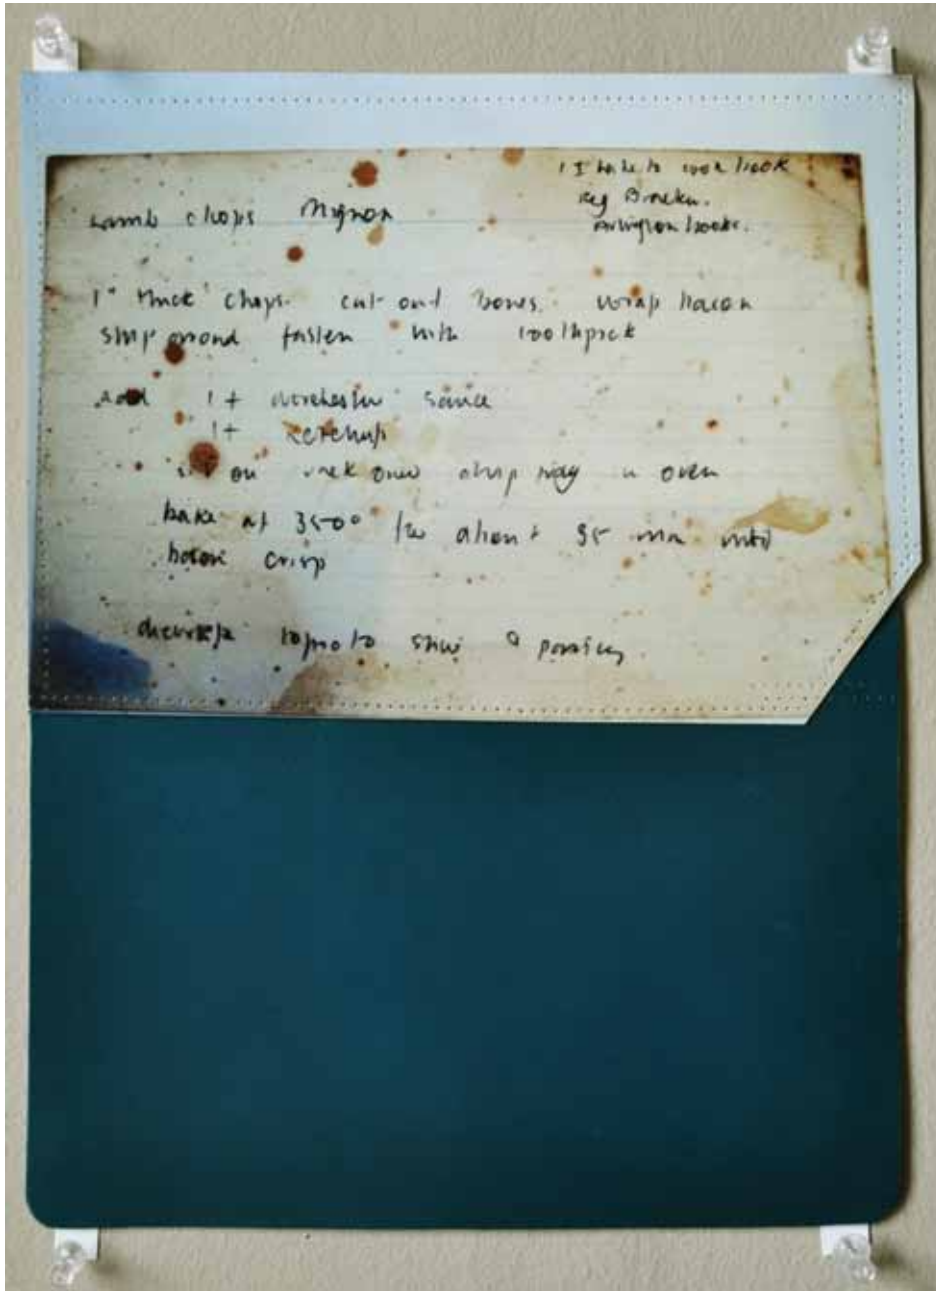 I hate to cook book
Peg Bracken.
Arlington books.
Lamb chops Mignon
1" thick chops cut out bones. wrap bacon
strip around fasten with toothpick
Add 1 t worchester sauce
1 t Ketchup
on rack over drip tray in oven
bake at 350° for about 35 min until
bacon crisp
tomato slice parsley